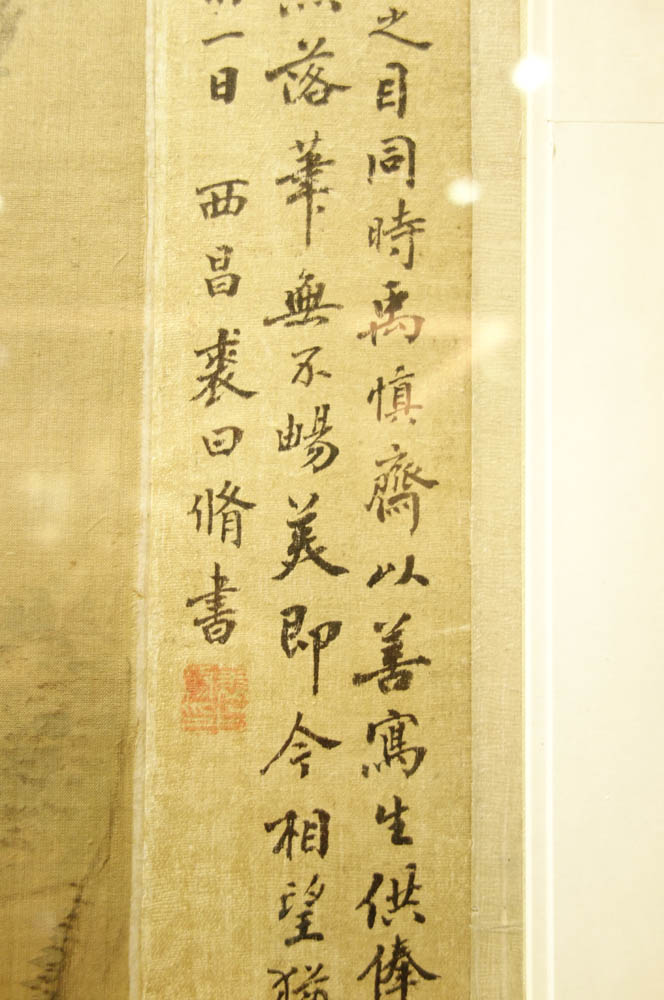 之目同時禹慎齋以善寫生供俸
落華無不暢美即今相望猶
一日 西昌裘曰脩書